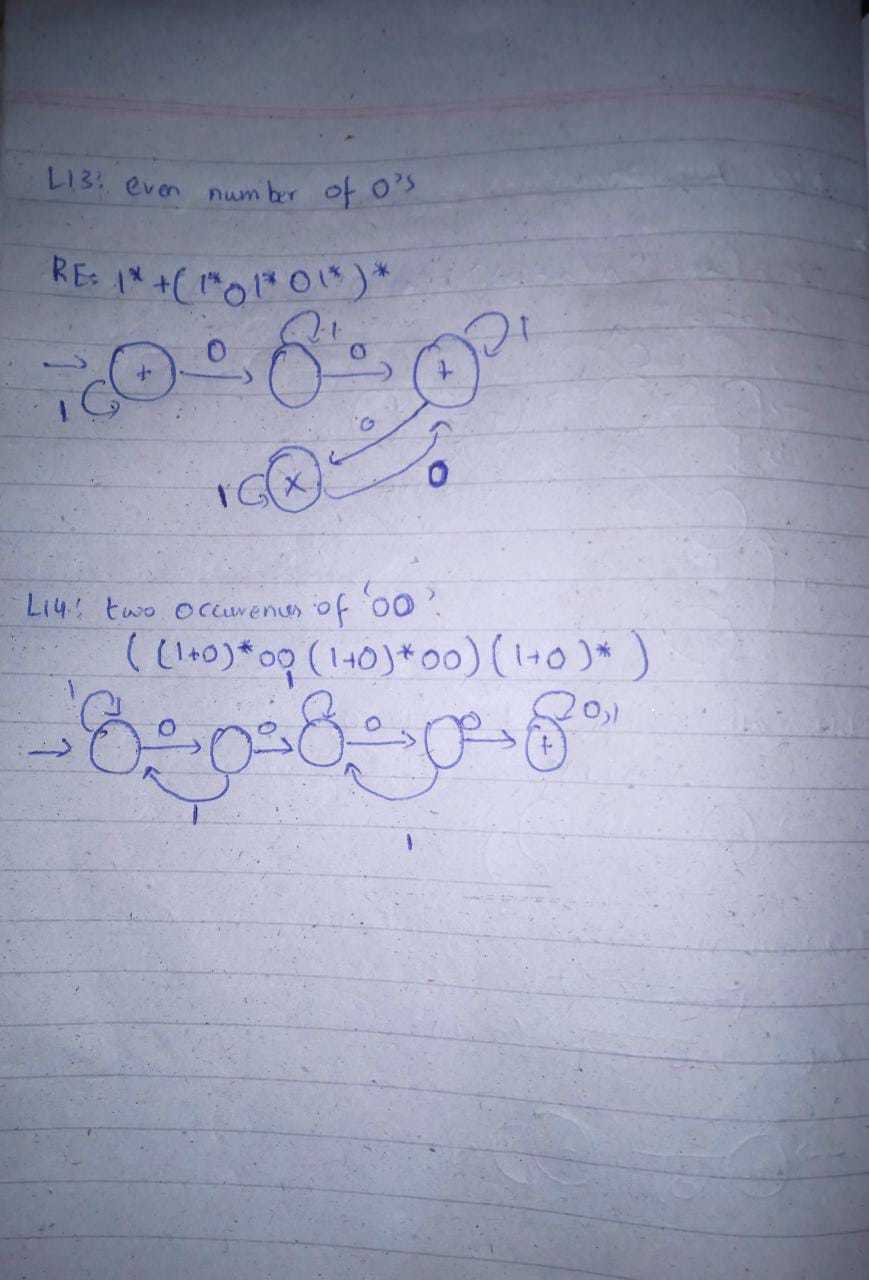 L13: even number of 0's
RE: 1* + (1*01*01*)*
0 1 0 1
+ +
1 0
1 x 0
L14: two occurences of '00'.
((1+0)*00(1+0)*00)(1+0)*)
1 1
0 0 0 0 0,1
+
1
1